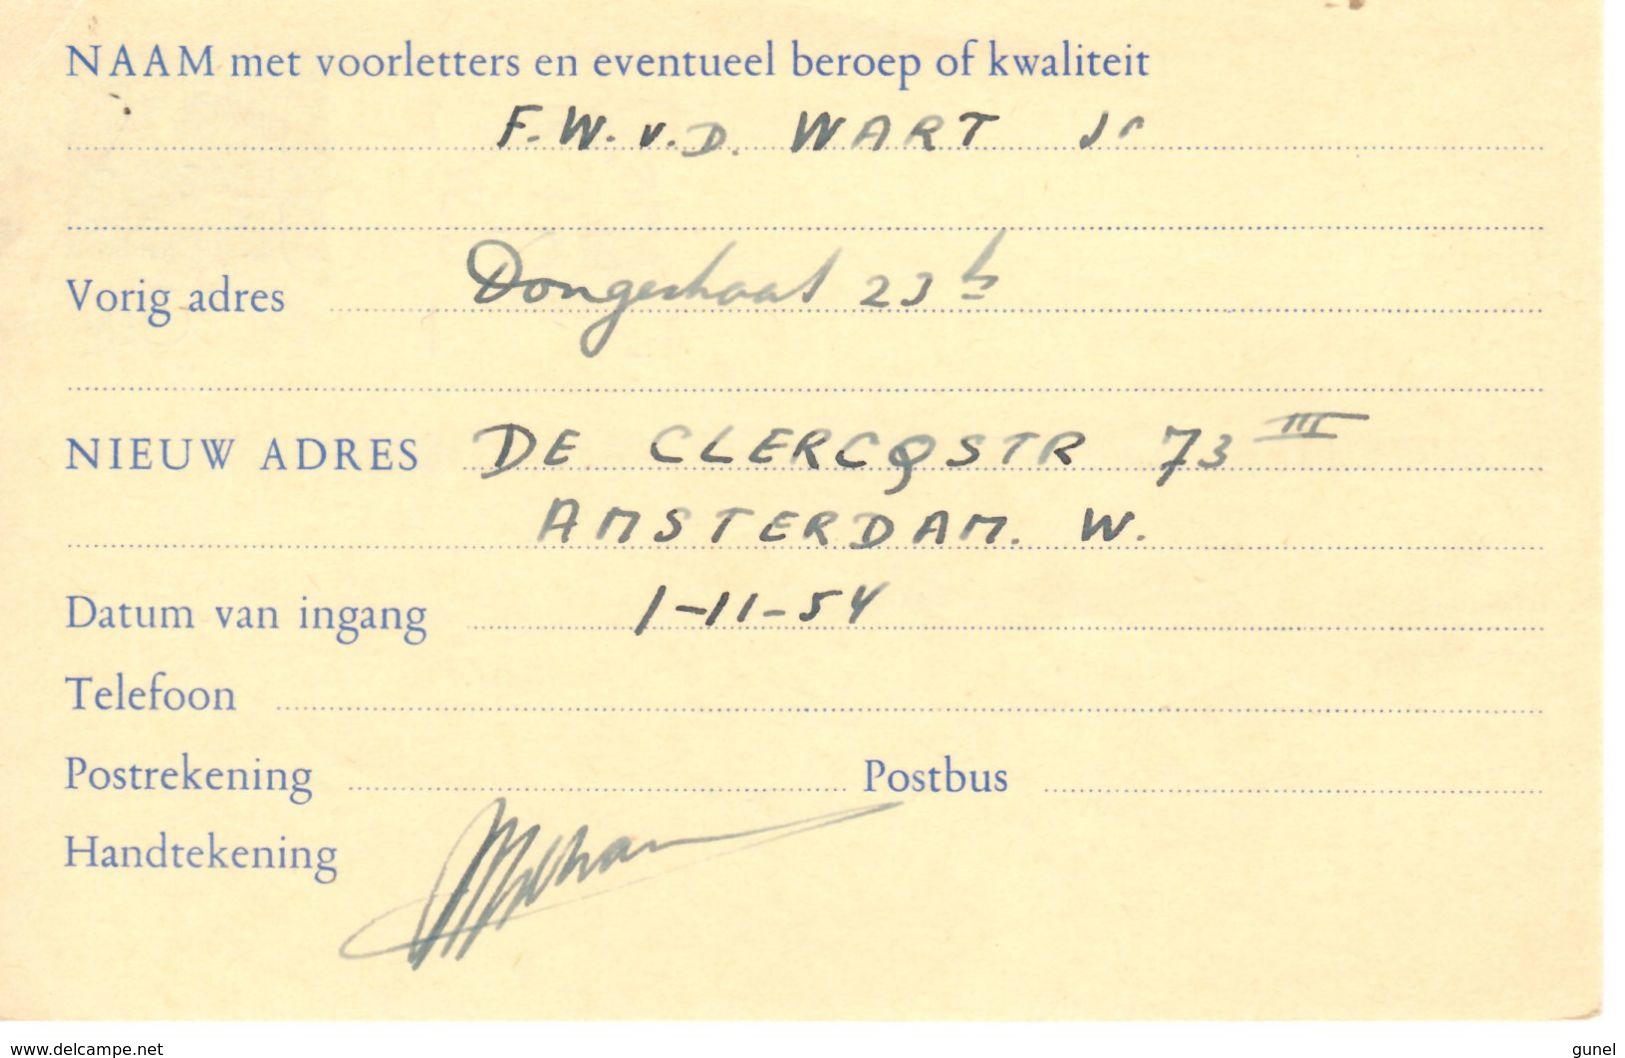 NAAM met voorletters en eventueel beroep of kwaliteit
F. W. v. D. WART Jr
Vorig adres Dongestraat 23 h
NIEUW ADRES DE CLERCQSTR 73 III
AMSTERDAM. W.
Datum van ingang 1-11-54
Telefoon
Postrekening Postbus
Handtekening
www.delcampe.net gunel